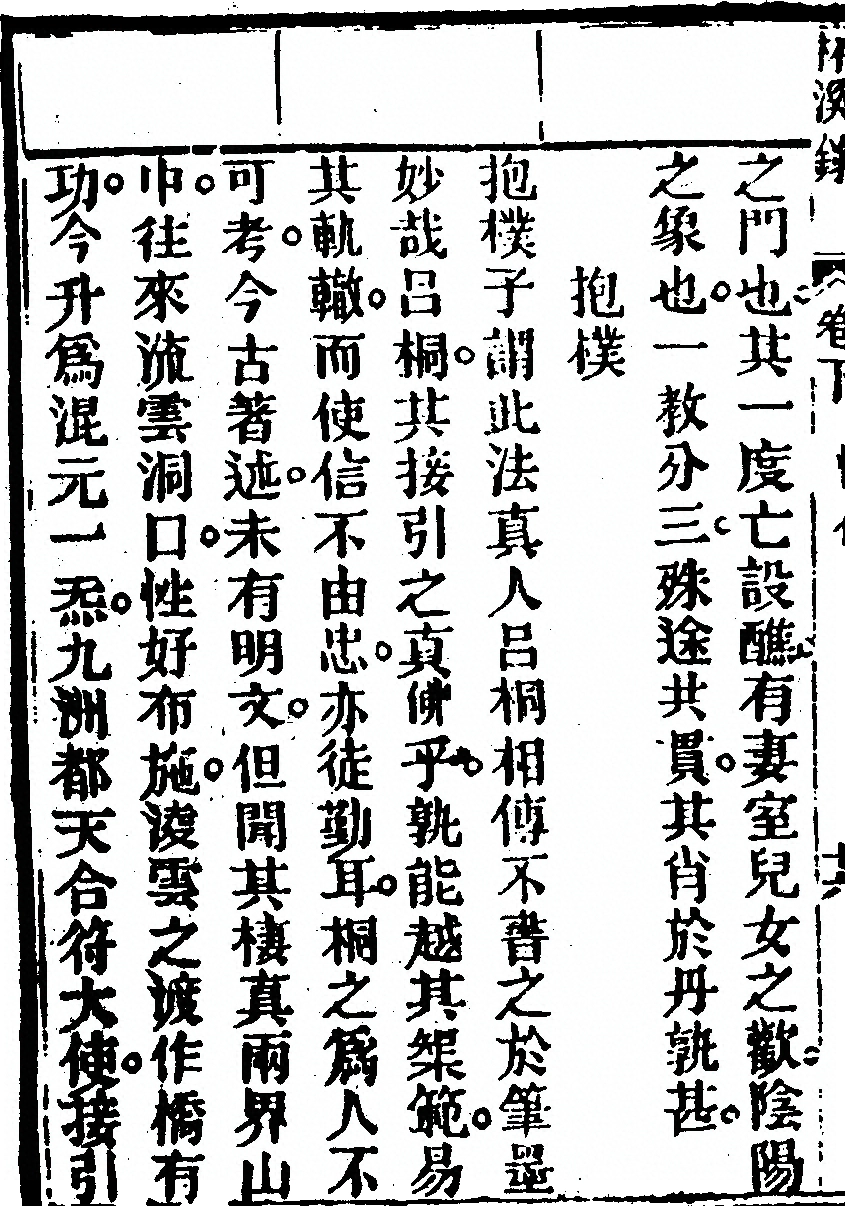 之門也。其一度亡設醮。有妻室兒女之歡。陰陽
之象也。一教分三。殊途共貫。其肖於丹孰甚。
抱樸
抱樸子謂此法真人呂桐相傳不書之於筆墨
妙哉呂桐。其接引之真傳乎。孰能越其榘範。易
其軌轍。而使信不由忠。亦徒勤耳。桐之為人不
可考。今古著述。未有明文。但聞其棲真兩界山
中。往來流雲洞口。性好布施。淩雲之渡作橋有
功。今升為混元一炁。九洲都天合符大使。接引